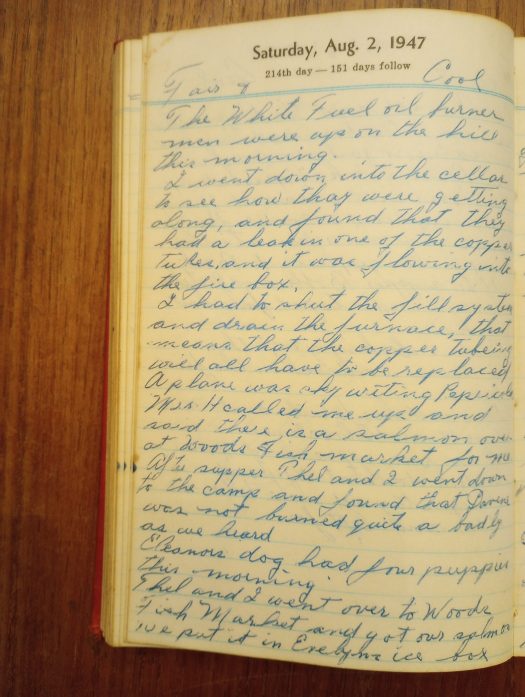 Saturday, Aug. 2, 1947
214th day — 151 days follow
Fair & Cool
The White Fuel oil burner
men were up on the hill
this morning.
I went down into the cellar
to see how thay were getting
along, and found that they
had a leak in one of the copper
tubes, and it was flowing into
the fire box.
I had to shut the fill system
and drain the furnace, that
means that the copper tubeing
will all have to be replaced
A plane was sky writing Pepsicola
Mrs H called me up and
said there is a salmon over
at Woods Fish market for me
After supper Phel and I went down
to the camp and found that
was not burned quite a badly
as we heard
Eleanors dog had four puppies
this morning.
Phel and I went over to Woods
Fish Market and got our salmon
we put it in Evelyns ice box